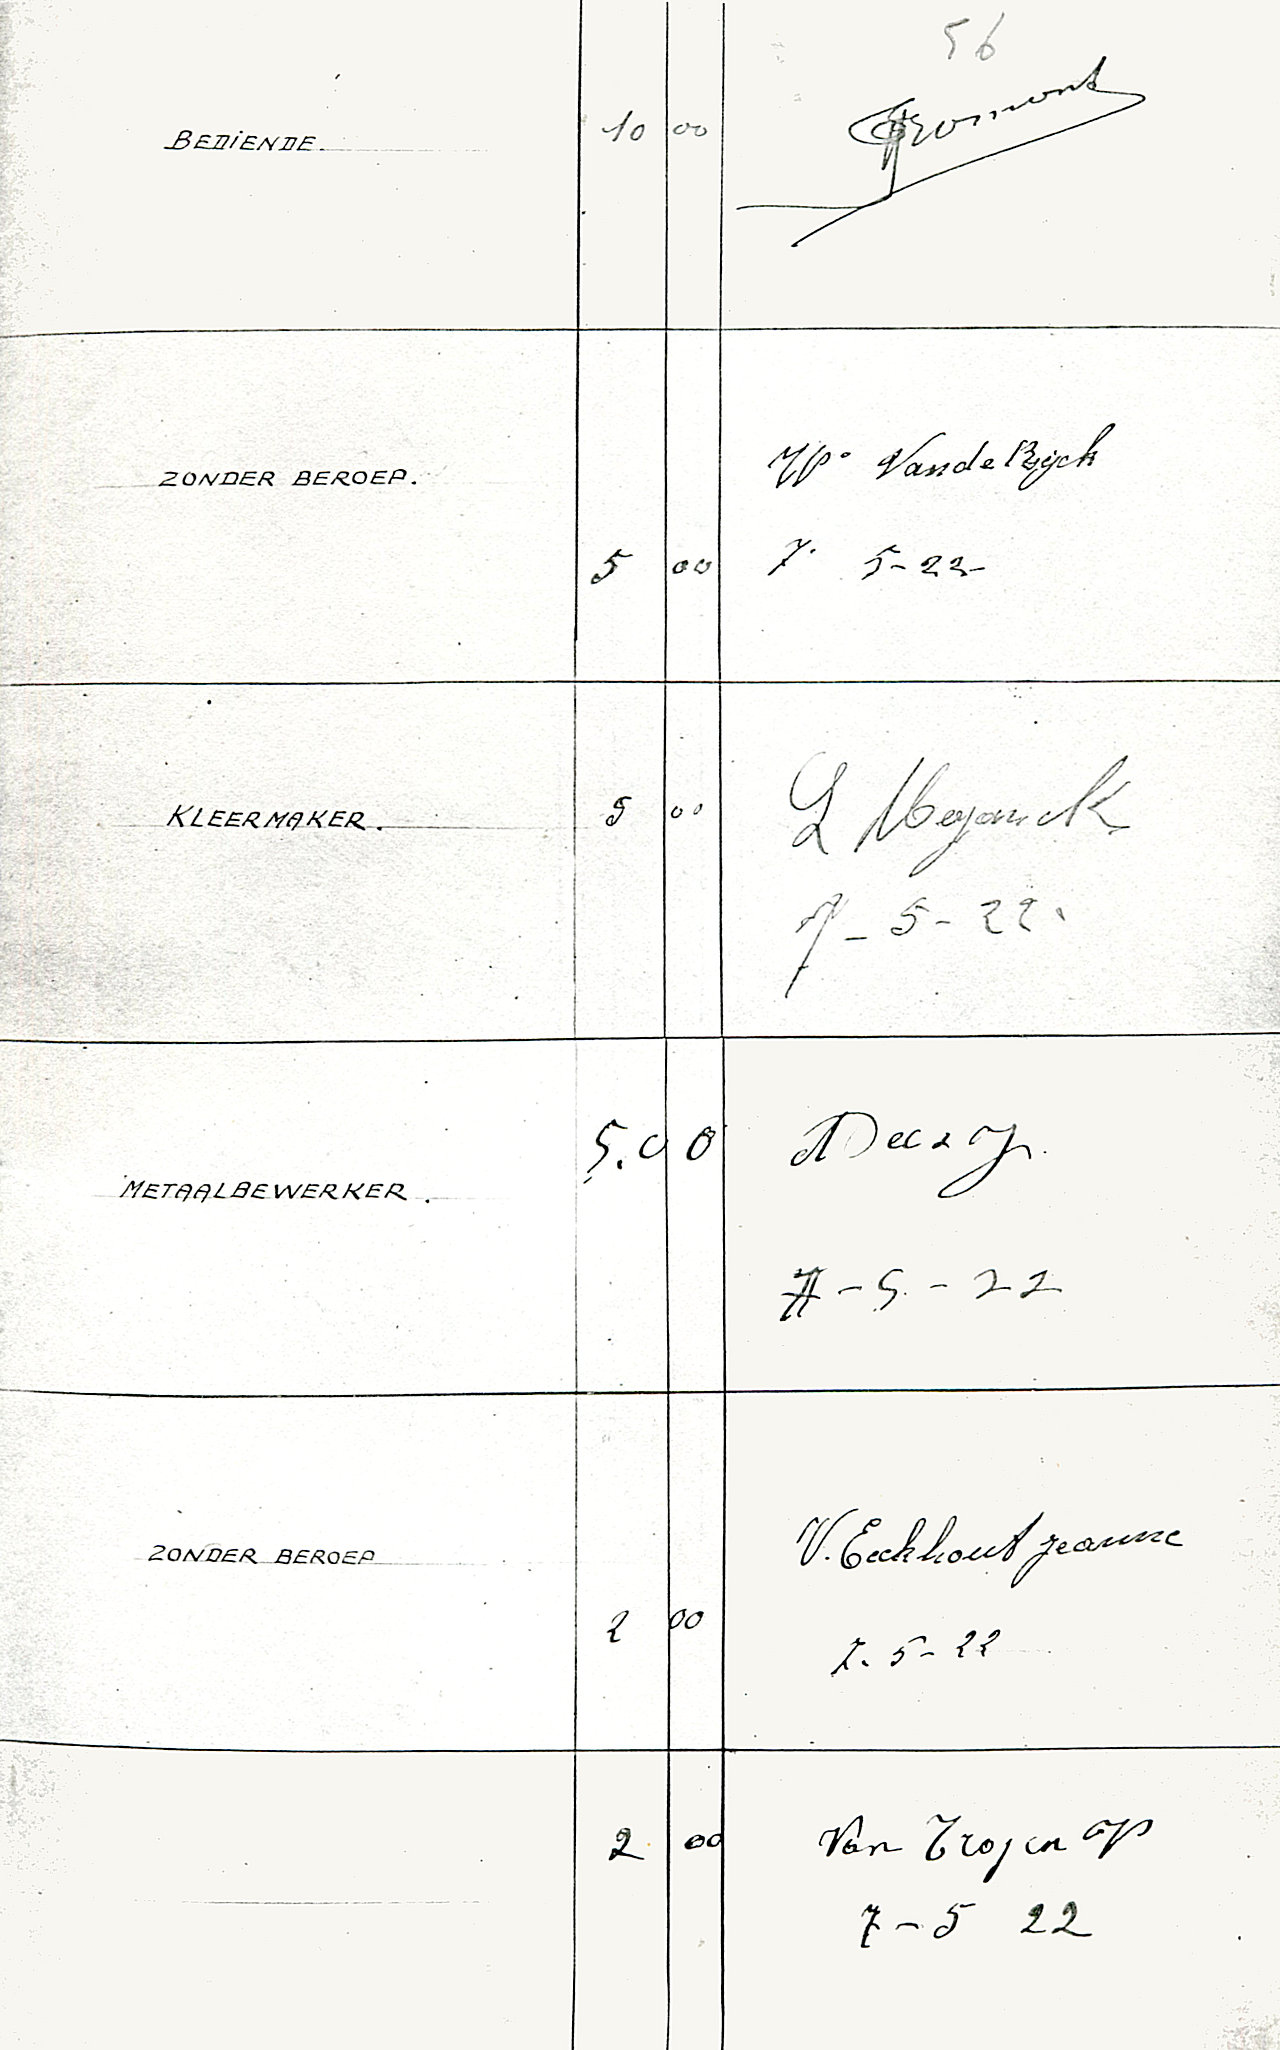 56
BEDIENDE. 10 00
ZONDER BEROEP. Vande Ryck
5 00 7. 5-22-
KLEERMAKER. 5 00 L
7-5-22.
5.00
METAALBEWERKER.
7-5-22
V. Eeckhout Jeanne
ZONDER BEROEP
2 00
7.5-22
2 00 Van
7-5 22